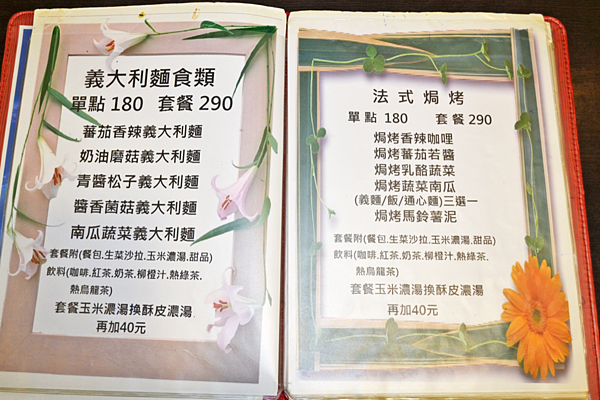 義大利麵食類
單點 180 套餐 290
蕃茄香辣義大利麵
奶油磨菇義大利麵
青醬松子義大利麵
醬香菌菇義大利麵
南瓜蔬菜義大利麵
套餐附(餐包.生菜沙拉.玉米濃湯.甜品)
飲料(咖啡.紅茶.奶茶.柳橙汁.熱綠茶.
熱烏龍茶)
套餐玉米濃湯換酥皮濃湯
再加40元
法式焗烤
單點 180 套餐 290
焗烤香辣咖哩
焗烤蕃茄若醬
焗烤乳酪蔬菜
焗烤蔬菜南瓜
(義麵/飯/通心麵)三選一
焗烤馬鈴薯泥
套餐附(餐包.生菜沙拉.玉米濃湯.甜品)
飲料(咖啡.紅茶.奶茶.柳橙汁.熱綠茶.
熱烏龍茶)
套餐玉米濃湯換酥皮濃湯
再加40元